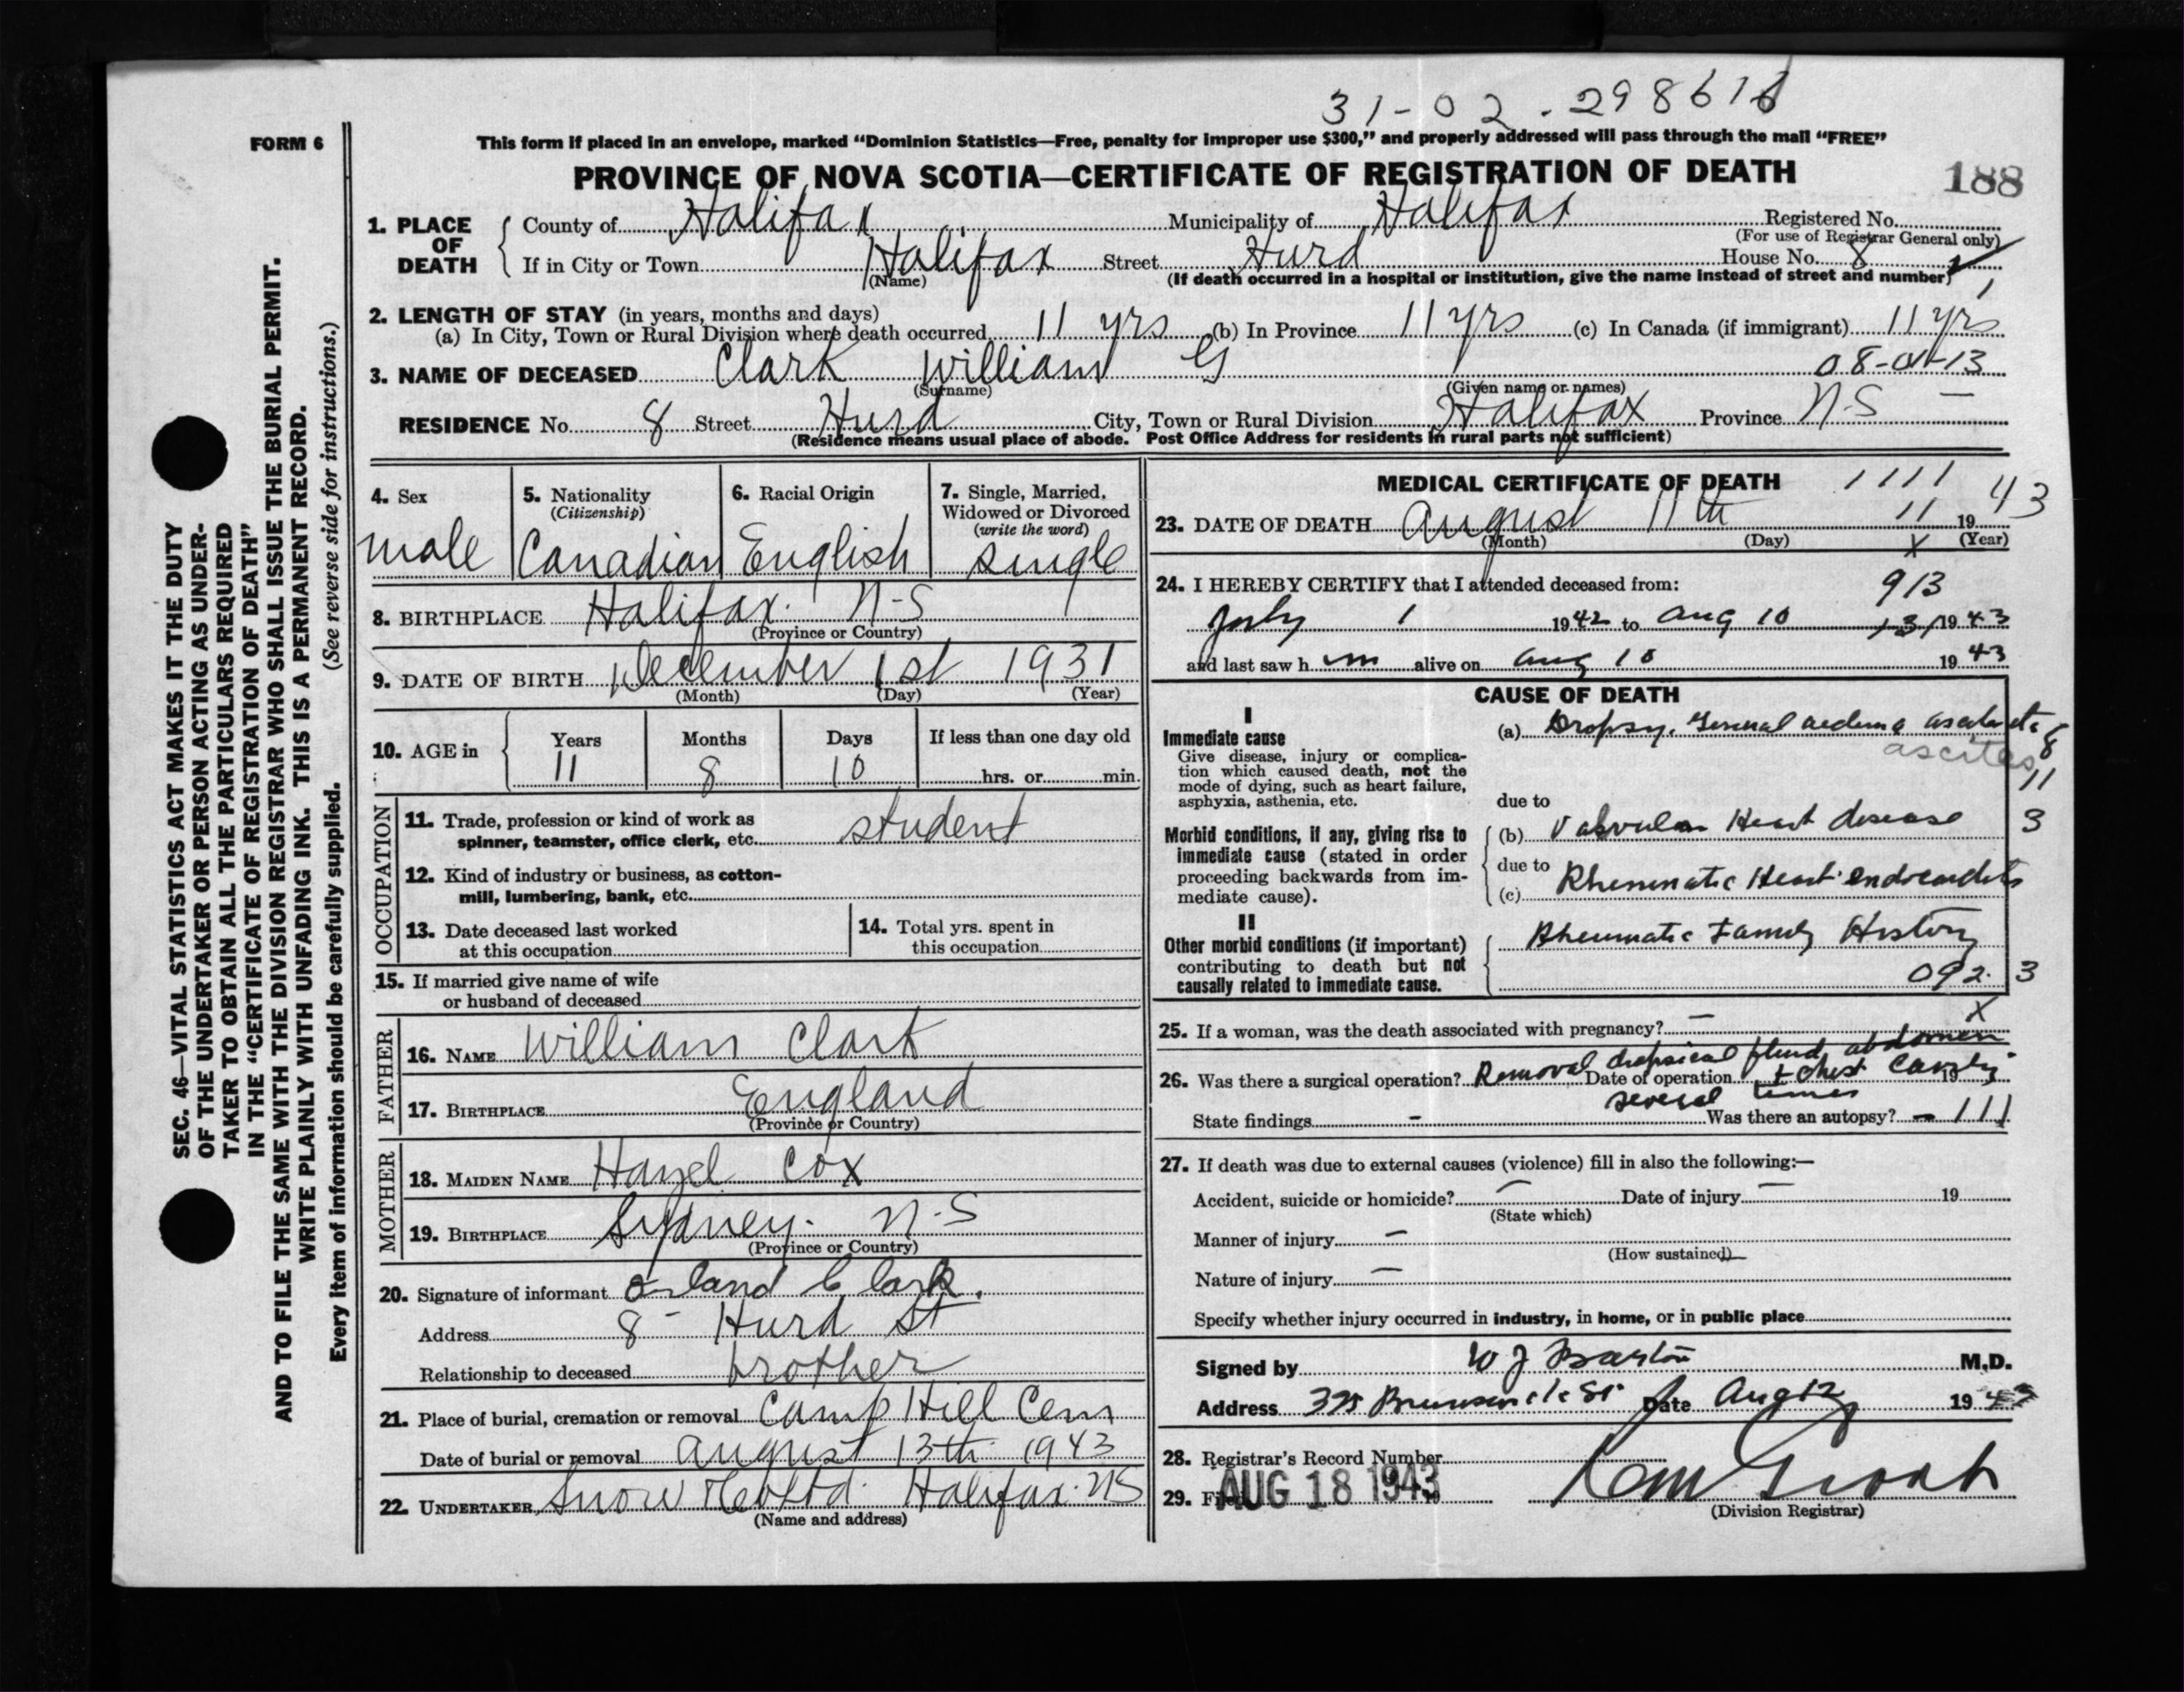 31-02-298616
FORM 6
This form if placed in an envelope, marked “Dominion Statistics—Free, penalty for improper use $300,” and properly addressed will pass through the mail “FREE”
PROVINCE OF NOVA SCOTIA—CERTIFICATE OF REGISTRATION OF DEATH
188
1. PLACE OF DEATH { County of Halifax Municipality of Halifax Registered No.
(For use of Registrar General only)
If in City or Town Halifax Street Hurd House No. 8
(Name) (If death occurred in a hospital or institution, give the name instead of street and number)
2. LENGTH OF STAY (in years, months and days)
(a) In City, Town or Rural Division where death occurred 11 yrs (b) In Province 11 yrs (c) In Canada (if immigrant) 11 yrs
3. NAME OF DECEASED Clark William G
(Surname) (Given name or names)
RESIDENCE No. 8 Street Hurd City, Town or Rural Division Halifax Province N-S
(Residence means usual place of abode. Post Office Address for residents in rural parts not sufficient)
4. Sex
male
5. Nationality
(Citizenship)
Canadian
6. Racial Origin
English
7. Single, Married, Widowed or Divorced
(write the word)
single
8. BIRTHPLACE Halifax. N-S
(Province or Country)
9. DATE OF BIRTH December 1st 1931
(Month) (Day) (Year)
10. AGE in { Years Months Days If less than one day old
11 8 10 hrs. or min.
OCCUPATION
11. Trade, profession or kind of work as
spinner, teamster, office clerk, etc. student
12. Kind of industry or business, as cotton-
mill, lumbering, bank, etc.
13. Date deceased last worked
at this occupation
14. Total yrs. spent in
this occupation
15. If married give name of wife
or husband of deceased
FATHER
16. NAME William Clark
17. BIRTHPLACE England
(Province or Country)
MOTHER
18. MAIDEN NAME Hazel Cox
19. BIRTHPLACE Sydney. N-S
(Province or Country)
20. Signature of informant Orland Clark.
Address 8 - Hurd St
Relationship to deceased brother
21. Place of burial, cremation or removal Camp Hill Cem
Date of burial or removal August 13th 1943
22. UNDERTAKER Snow & Co Ltd. Halifax. NS
(Name and address)
MEDICAL CERTIFICATE OF DEATH 1111
23. DATE OF DEATH August 11th 11 1943
(Month) (Day) (Year)
X
24. I HEREBY CERTIFY that I attended deceased from:
913
July 1 1942 to Aug 10 131 1943
and last saw h im alive on Aug 10 1943
CAUSE OF DEATH
I
Immediate cause
Give disease, injury or complica-
tion which caused death, not the
mode of dying, such as heart failure,
asphyxia, asthenia, etc.
(a) Dropsy. General aedema
ascites
8
11
due to
Morbid conditions, if any, giving rise to
immediate cause (stated in order
proceeding backwards from im-
mediate cause).
(b) Valvular Heart disease 3
due to
(c) Rheumatic Heart endocarditis
II
Other morbid conditions (if important)
contributing to death but not
causally related to immediate cause.
Rheumatic Family History
092. 3
X
25. If a woman, was the death associated with pregnancy? —
26. Was there a surgical operation? Removal dropsical fluid abdomen
Date of operation + chest cavity 19
several times
State findings - Was there an autopsy? - 111
27. If death was due to external causes (violence) fill in also the following:—
Accident, suicide or homicide? — Date of injury — 19
(State which)
Manner of injury —
(How sustained)
Nature of injury —
Specify whether injury occurred in industry, in home, or in public place
Signed by W J Barton M.D.
Address 375 Brunswick St Date Aug 12 1943
28. Registrar's Record Number
29. Filed AUG 18 1943
(Division Registrar)
SEC. 46—VITAL STATISTICS ACT MAKES IT THE DUTY
OF THE UNDERTAKER OR PERSON ACTING AS UNDER-
TAKER TO OBTAIN ALL THE PARTICULARS REQUIRED
IN THE “CERTIFICATE OF REGISTRATION OF DEATH”
AND TO FILE THE SAME WITH THE DIVISION REGISTRAR WHO SHALL ISSUE THE BURIAL PERMIT.
WRITE PLAINLY WITH UNFADING INK. THIS IS A PERMANENT RECORD.
Every item of information should be carefully supplied. (See reverse side for instructions.)